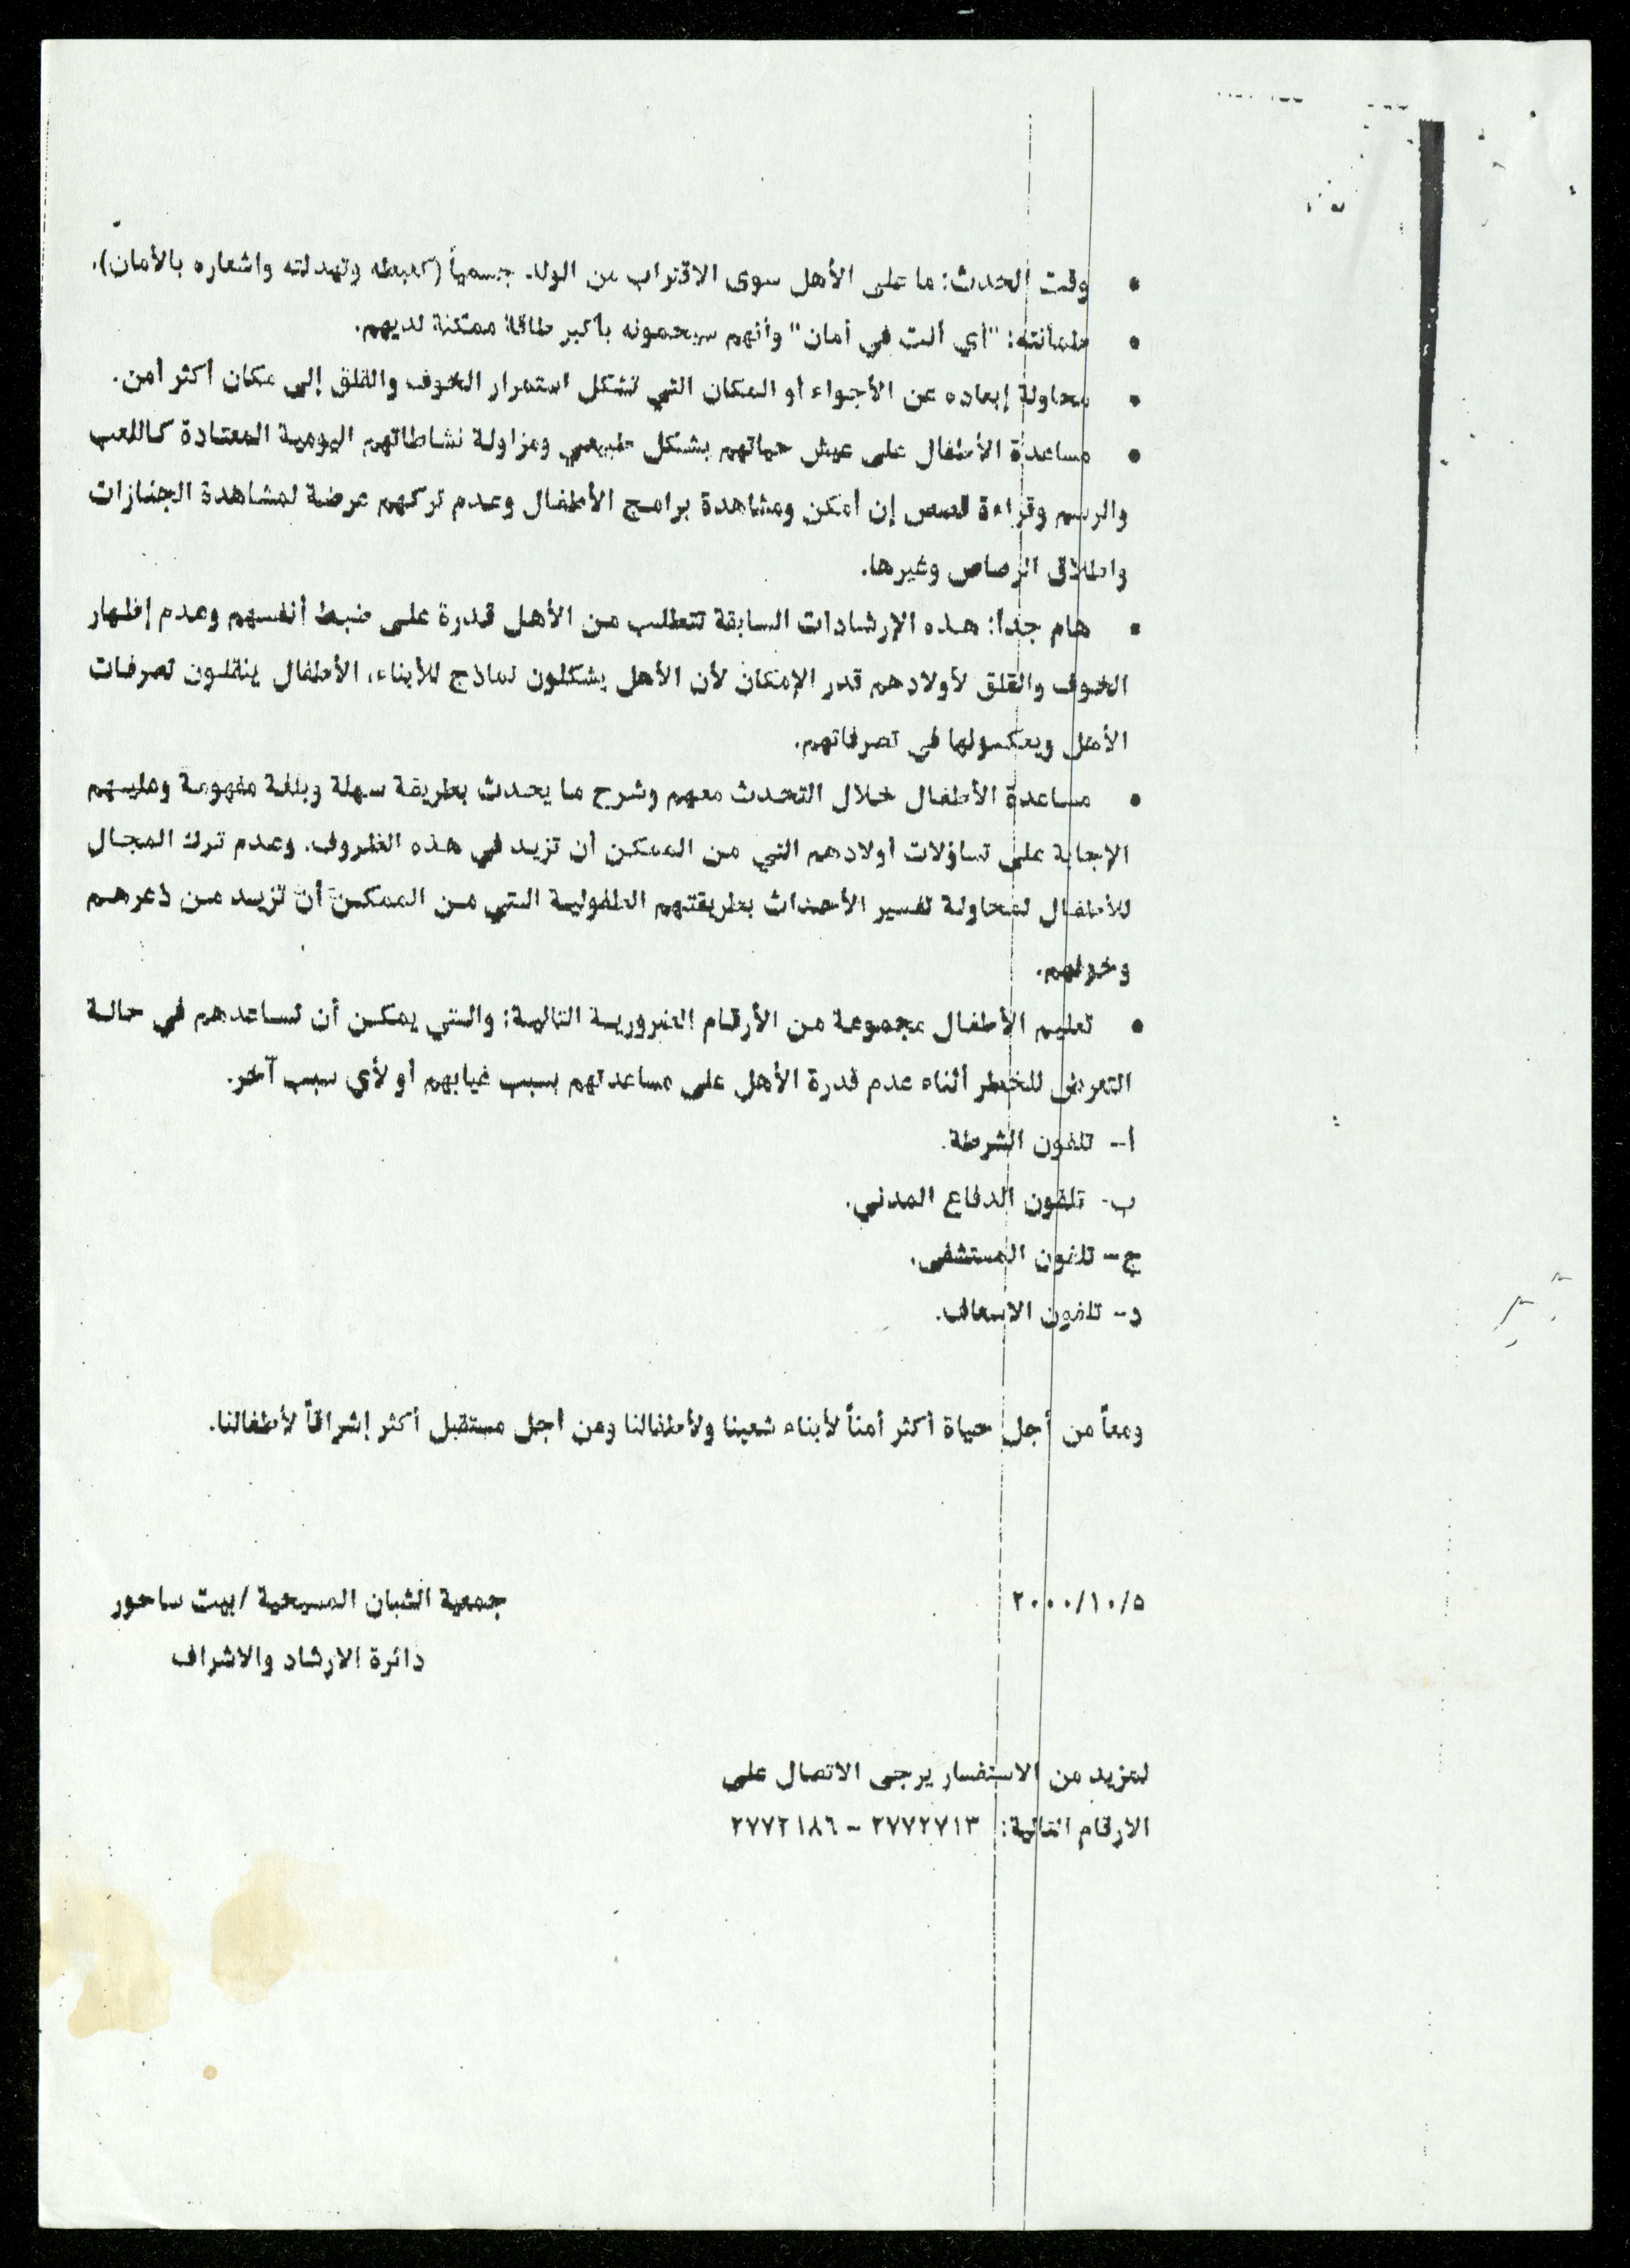 • وقت الحدث: ما على الأهل سوى الاقتراب من الولد جسمياً (كغبطه وتهدئته واشعاره بالأمان).
• طمأنته: "أي أنت في أمان" وأنهم سيحمونه بأكبر طاقة ممكنة لديهم.
• محاولة إبعاده عن الأجواء أو المكان التي تشكل استمرار الخوف والقلق إلى مكان أكثر أمن.
• مساعدة الأطفال على عيش حياتهم بشكل طبيعي ومزاولة نشاطاتهم اليومية المعتادة كاللعب
والرسم وقراءة قصص إن أمكن ومشاهدة برامج الأطفال وعدم تركهم عرضة لمشاهدة الجنازات
واطلاق الرصاص وغيرها.
• هام جداً: هذه الإرشادات السابقة تتطلب من الأهل قدرة على ضبط أنفسهم وعدم إظهار
الخوف والقلق لأولادهم قدر الإمكان لأن الأهل يشكلون نماذج للأبناء، الأطفال ينقلون تصرفات
الأهل ويعكسونها في تصرفاتهم.
• مساعدة الأطفال خلال التحدث معهم وشرح ما يحدث بطريقة سهلة وبلغة مفهومة وعليهم
الإجابة على تساؤلات أولادهم التي من الممكن أن تزيد في هذه الظروف. وعدم ترك المجال
للأطفال لمحاولة تفسير الأحداث بطريقتهم الطفولية التي من الممكن أن تزيد من ذعرهم
وخوفهم.
• تعليم الأطفال مجموعة من الأرقام الضرورية التالية: والتي يمكن أن تساعدهم في حالة
التعرض للخطر أثناء عدم قدرة الأهل على مساعدتهم بسبب غيابهم أو لأي سبب آخر.
أ- تلفون الشرطة.
ب- تلفون الدفاع المدني.
ج- تلفون المستشفى.
د- تلفون الاسعاف.
ومعاً من أجل حياة أكثر أمناً لأبناء شعبنا ولأطفالنا ومن أجل مستقبل أكثر إشراقاً لأطفالنا.
٢٠٠٠/١٠/٥
جمعية الشبان المسيحية /بيت ساحور
دائرة الارشاد والاشراف
لمزيد من الاستفسار يرجى الاتصال على
الارقام التالية: ٢٧٧٢٧١٣ - ٢٧٧٢١٨٦